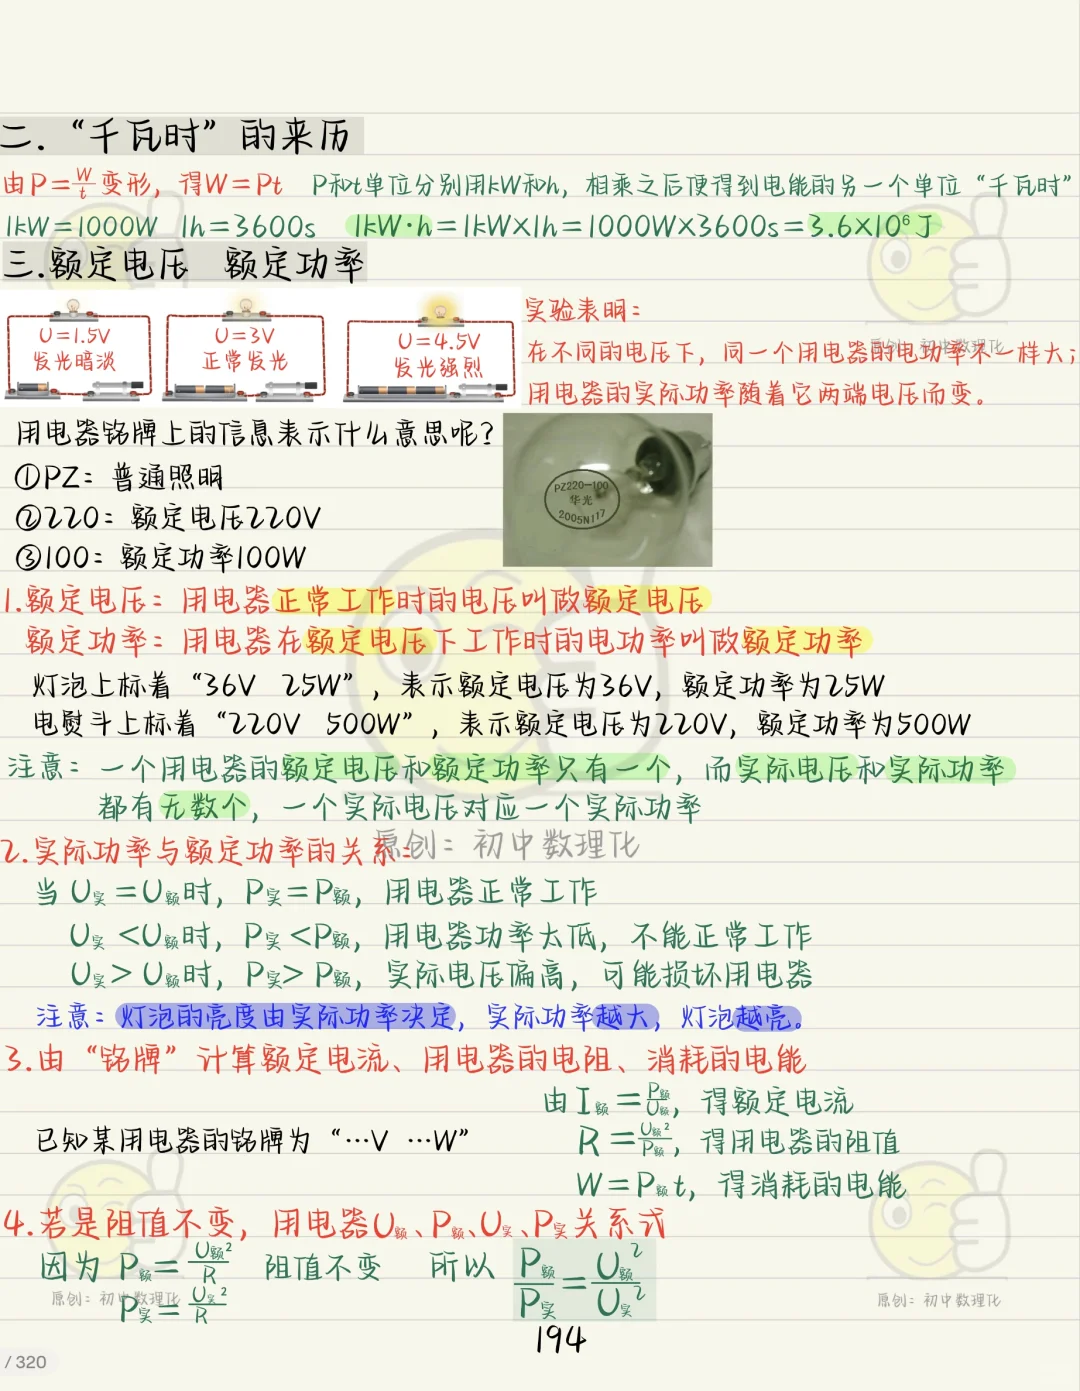 二.“千瓦时”的来历
由P=W/t变形，得W=Pt P和t单位分别用kW和h，相乘之后便得到电能的另一个单位“千瓦时”
1kW=1000W 1h=3600s 1kW·h=1kW×1h=1000W×3600s=3.6×10⁶J
三.额定电压 额定功率
U=1.5V 发光暗淡
U=3V 正常发光
U=4.5V 发光强烈
实验表明：
在不同的电压下，同一个用电器的电功率不一样大；
用电器的实际功率随着它两端电压而变。
用电器铭牌上的信息表示什么意思呢？
①PZ：普通照明
②220：额定电压220V
③100：额定功率100W
PZ220-100
华光
2005N117
1.额定电压：用电器正常工作时的电压叫做额定电压
额定功率：用电器在额定电压下工作时的电功率叫做额定功率
灯泡上标着“36V 25W”，表示额定电压为36V，额定功率为25W
电熨斗上标着“220V 500W”，表示额定电压为220V，额定功率为500W
注意：一个用电器的额定电压和额定功率只有一个，而实际电压和实际功率
都有无数个，一个实际电压对应一个实际功率
原创：初中数理化
2.实际功率与额定功率的关系：
当U实=U额时，P实=P额，用电器正常工作
U实<U额时，P实<P额，用电器功率太低，不能正常工作
U实>U额时，P实>P额，实际电压偏高，可能损坏用电器
注意：灯泡的亮度由实际功率决定，实际功率越大，灯泡越亮。
3.由“铭牌”计算额定电流、用电器的电阻、消耗的电能
已知某用电器的铭牌为“…V …W”
由I额=P额/U额，得额定电流
R=U额²/P额，得用电器的阻值
W=P额t，得消耗的电能
4.若是阻值不变，用电器U额、P额、U实、P实关系式
因为P额=U额²/R 阻值不变 所以 P额/P实=U额²/U实²
P实=U实²/R
原创：初中数理化
原创：初中数理化
194
/ 320